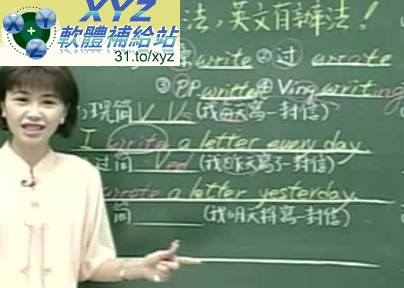 XYZ
軟體補給站
31.to/xyz
法,英文自辦法!
原write ②过 wrote
③PP written ④Ving writing
现简 V、Vs (我每天寫一封信)
I write a letter every day.
过简 Ved (我昨天寫了一封信)
wrote a letter yesterday.
简 (我明天將寫一封信)